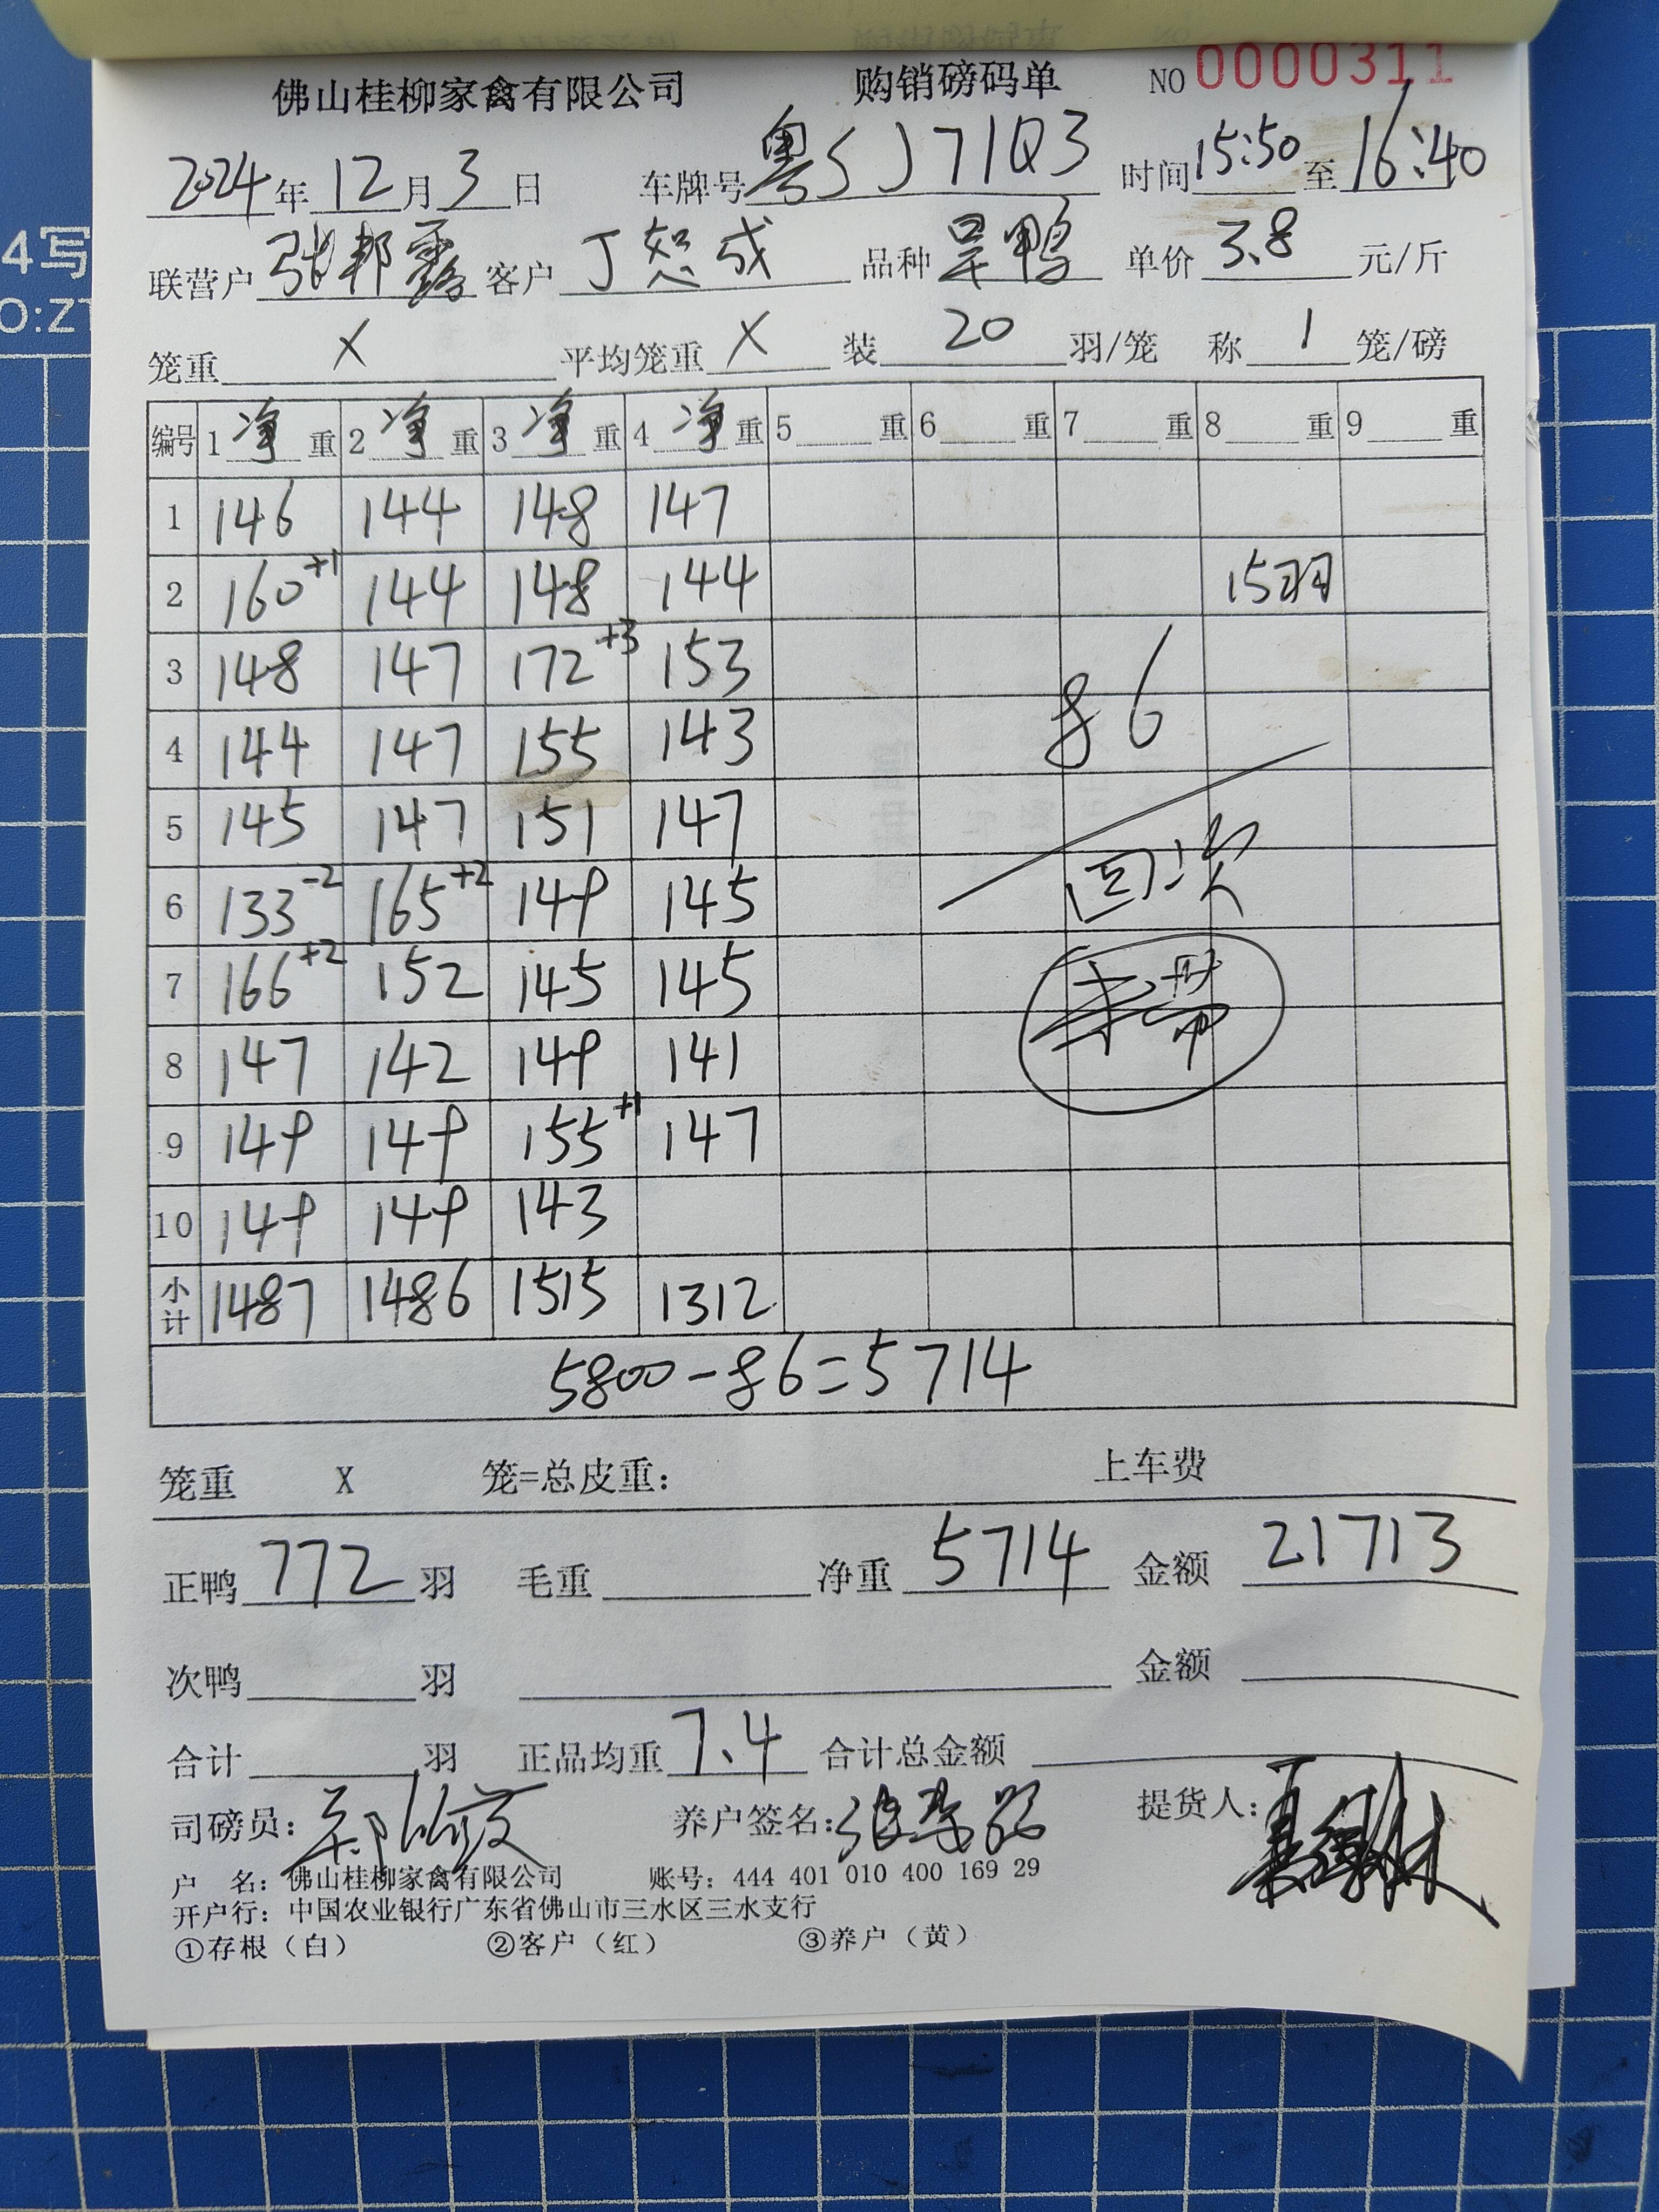 佛山桂柳家禽有限公司 购销磅码单 NO 0000311
2024年12月3日 车牌号 粤SJ71Q3 时间15:50至16:40
联营户 张邦露 客户 丁恕成 品种 旱鸭 单价 3.8 元/斤
笼重 X 平均笼重 X 装 20 羽/笼 称 1 笼/磅
编号 1净重 2净重 3净重 4净重 5 重 6 重 7 重 8 重 9 重
1 146 144 148 147
2 160+1 144 148 144 15羽
3 148 147 172+3 153
86
4 144 147 155 143
5 145 147 151 147
回次
6 133-2 165+2 149 145
7 166+2 152 145 145
8 147 142 149 141
9 149 149 155+1 147
10 149 149 143
小计 1487 1486 1515 1312
5800-86=5714
笼重 X 笼=总皮重: 上车费
正鸭 772 羽 毛重 净重 5714 金额 21713
次鸭 羽 金额
合计 羽 正品均重 7.4 合计总金额
司磅员: 养户签名: 提货人:
户 名: 佛山桂柳家禽有限公司 账号: 444 401 010 400 169 29
开户行: 中国农业银行广东省佛山市三水区三水支行
①存根（白） ②客户（红） ③养户（黄）
4写